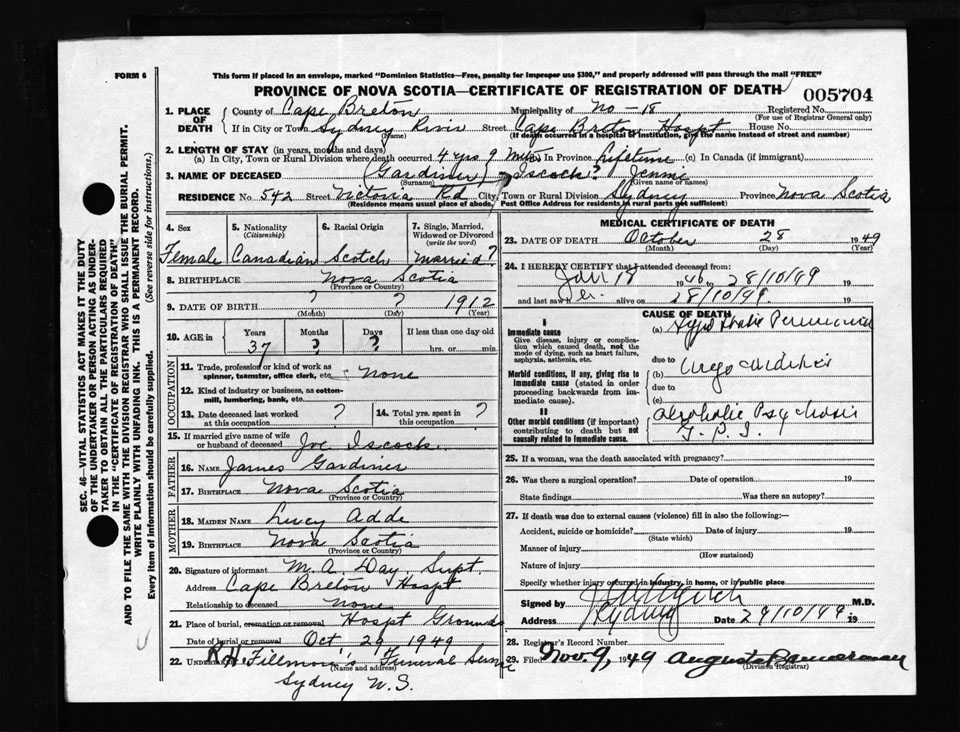 FORM 6
This form if placed in an envelope, marked "Dominion Statistics—Free, penalty for improper use $300," and properly addressed will pass through the mail "FREE"
PROVINCE OF NOVA SCOTIA—CERTIFICATE OF REGISTRATION OF DEATH
005704
1. PLACE OF DEATH
County of Cape Breton Municipality of No - 18 Registered No.
(For use of Registrar General only)
If in City or Town Sydney River Street Cape Breton Hospt House No.
(Name) (If death occurred in a hospital or institution, give the name instead of street and number)
2. LENGTH OF STAY (in years, months and days)
(a) In City, Town or Rural Division where death occurred 4 yrs 9 mths In Province Lifetime (c) In Canada (if immigrant)
3. NAME OF DECEASED (Gardiner) Iscock? Jennie
(Surname) (Given name or names)
RESIDENCE No. 542 Street Victoria Rd City, Town or Rural Division Sydney Province Nova Scotia
(Residence means usual place of abode, Post Office Address for residents in rural parts not sufficient)
4. Sex Female
5. Nationality (Citizenship) Canadian
6. Racial Origin Scotch
7. Single, Married, Widowed or Divorced (write the word) Married?
8. BIRTHPLACE Nova Scotia
(Province or Country)
9. DATE OF BIRTH ? ? 1912
(Month) (Day) (Year)
10. AGE in Years Months Days If less than one day old
37 ? ? hrs. or min.
OCCUPATION
11. Trade, profession or kind of work as spinner, teamster, office clerk, etc. None
12. Kind of industry or business, as cotton-mill, lumbering, bank, etc.
13. Date deceased last worked at this occupation ?
14. Total yrs. spent in this occupation ?
15. If married give name of wife or husband of deceased Joe Iscock.
FATHER
16. NAME James Gardiner
17. BIRTHPLACE Nova Scotia
(Province or Country)
MOTHER
18. MAIDEN NAME Lucy Adde
19. BIRTHPLACE Nova Scotia
(Province or Country)
20. Signature of informant M. A. Day, Supt.
Address Cape Breton Hospt
Relationship to deceased none
21. Place of burial, cremation or removal Hospt Grounds
Date of burial or removal Oct. 29, 1949
22. Undertaker R.H. Fillmore's Funeral
(Name and address)
Sydney N.S.
MEDICAL CERTIFICATE OF DEATH
23. DATE OF DEATH October 28 1949
(Month) (Day)
24. I HEREBY CERTIFY that I attended deceased from:
Jan 18 1946 to 28/10/49 19
and last saw h er. alive on 28/10/49. 19
CAUSE OF DEATH
I
Immediate cause
Give disease, injury or complication which caused death, not the mode of dying, such as heart failure, asphyxia, asthenia, etc.
(a)
due to
Morbid conditions, if any, giving rise to immediate cause (stated in order proceeding backwards from immediate cause)
(b)
due to
(c)
II
Other morbid conditions (if important) contributing to death but not causally related to immediate cause.
Alcoholic Psychosis
G. P. I.
25. If a woman, was the death associated with pregnancy?
26. Was there a surgical operation? Date of operation 19
State findings Was there an autopsy?
27. If death was due to external causes (violence) fill in also the following:—
Accident, suicide or homicide? Date of injury 19
(State which)
Manner of injury
(How sustained)
Nature of injury
Specify whether injury occurred in industry, in home, or in public place
Signed by M.D.
Address Sydney Date 29/10/49 19
28. Registrar's Record Number
29. Filed Nov. 9, 1949
(Division Registrar)
SEC. 46—VITAL STATISTICS ACT MAKES IT THE DUTY
OF THE UNDERTAKER OR PERSON ACTING AS UNDER-
TAKER TO OBTAIN ALL THE PARTICULARS REQUIRED
IN THE "CERTIFICATE OF REGISTRATION OF DEATH"
AND TO FILE THE SAME WITH THE DIVISION REGISTRAR WHO SHALL ISSUE THE BURIAL PERMIT.
WRITE PLAINLY WITH UNFADING INK. THIS IS A PERMANENT RECORD.
Every item of information should be carefully supplied. (See reverse side for instructions.)